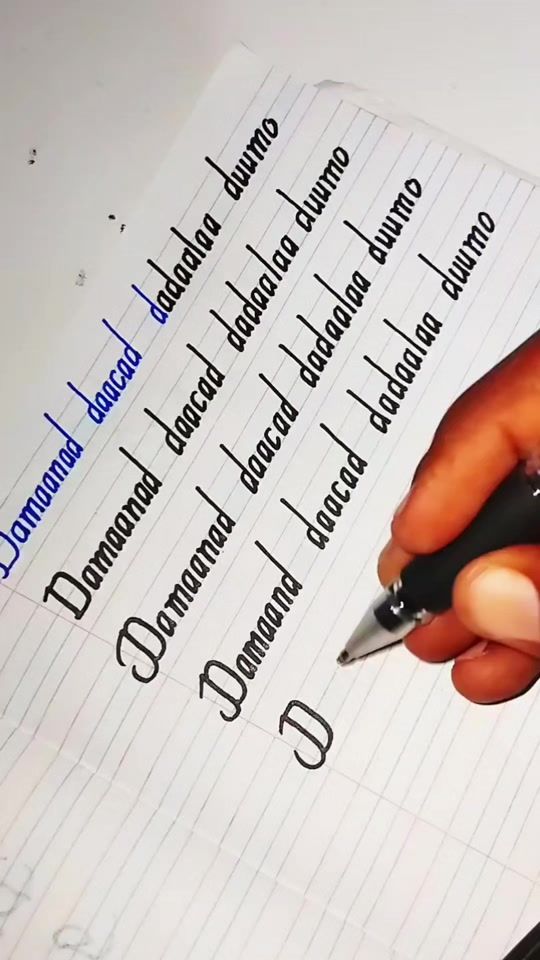 Damaanad daacad dadaalaa duumo
Damaanad daacad dadaalaa duumo
Damaanad daacad dadaalaa duumo
Damaand daacad dadaalaa duumo
D